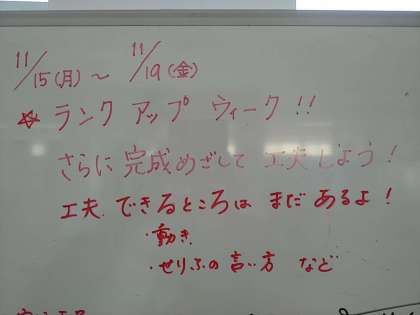 11/15(月)～11/19(金)
☆ランクアップウィーク!!
さらに完成めざして工夫しよう!
工夫できるところはまだあるよ!
・動き
・せりふの言い方 など